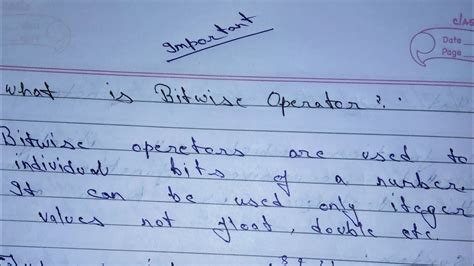 Important
Class
Date
Page
What is Bitwise Operator?
Bitwise operetors are used to
individual bits of a number
It can be used only iteger
values not float, double etc.